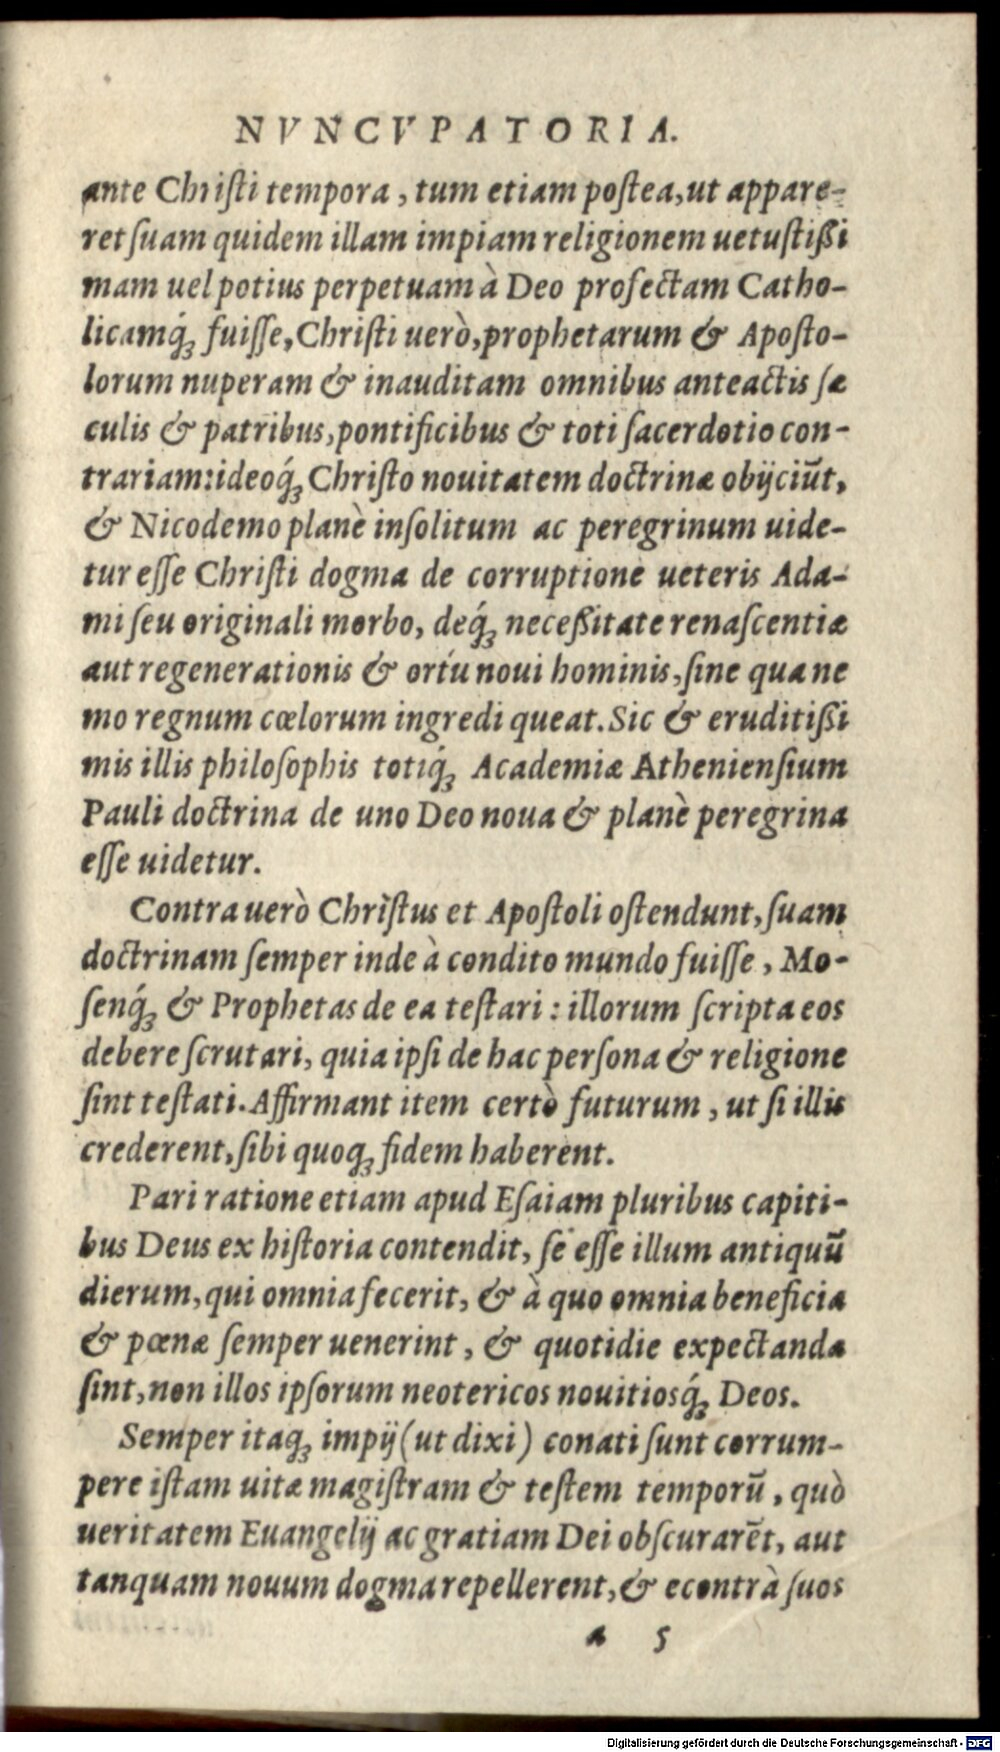 NVNCVPATORIA.
ante Chriſti tempora, tum etiam poſtea, ut appare-
ret ſuam quidem illam impiam religionem uetuſtißi
mam uel potius perpetuam à Deo profectam Catho-
licamq́ꝫ fuiſſe, Chriſti uerò, prophetarum & Apoſto-
lorum nuperam & inauditam omnibus anteactis ſæ
culis & patribus, pontificibus & toti ſacerdotio con-
trariam: ideoq́ꝫ Chriſto nouitatem doctrinæ obijciũt,
& Nicodemo planè inſolitum ac peregrinum uide-
tur eſſe Chriſti dogma de corruptione ueteris Ada-
mi ſeu originali morbo, deq́ꝫ neceßitate renaſcentiæ
aut regenerationis & ortu noui hominis, ſine qua ne
mo regnum cœlorum ingredi queat. Sic & eruditißi
mis illis philoſophis totiq́ꝫ Academiæ Athenienſium
Pauli doctrina de uno Deo noua & planè peregrina
eſſe uidetur.
Contra uerò Chriſtus et Apoſtoli oſtendunt, ſuam
doctrinam ſemper inde à condito mundo fuiſſe, Mo-
ſenq́ꝫ & Prophetas de ea teſtari: illorum ſcripta eos
debere ſcrutari, quia ipſi de hac perſona & religione
ſint teſtati. Affirmant item certò futurum, ut ſi illis
crederent, ſibi quoqꝫ fidem haberent.
Pari ratione etiam apud Eſaiam pluribus capiti-
bus Deus ex hiſtoria contendit, ſe eſſe illum antiquũ
dierum, qui omnia fecerit, & à quo omnia beneficia
& pœnæ ſemper uenerint, & quotidie expectanda
ſint, non illos ipſorum neotericos nouitiosq́ꝫ Deos.
Semper itaqꝫ impij (ut dixi) conati ſunt corrum-
pere iſtam uitæ magiſtram & teſtem temporũ, quò
ueritatem Euangelij ac gratiam Dei obſcurarẽt, aut
tanquam nouum dogma repellerent, & econtrà ſuos
a 5
Digitalisierung gefördert durch die Deutsche Forschungsgemeinschaft - DFG